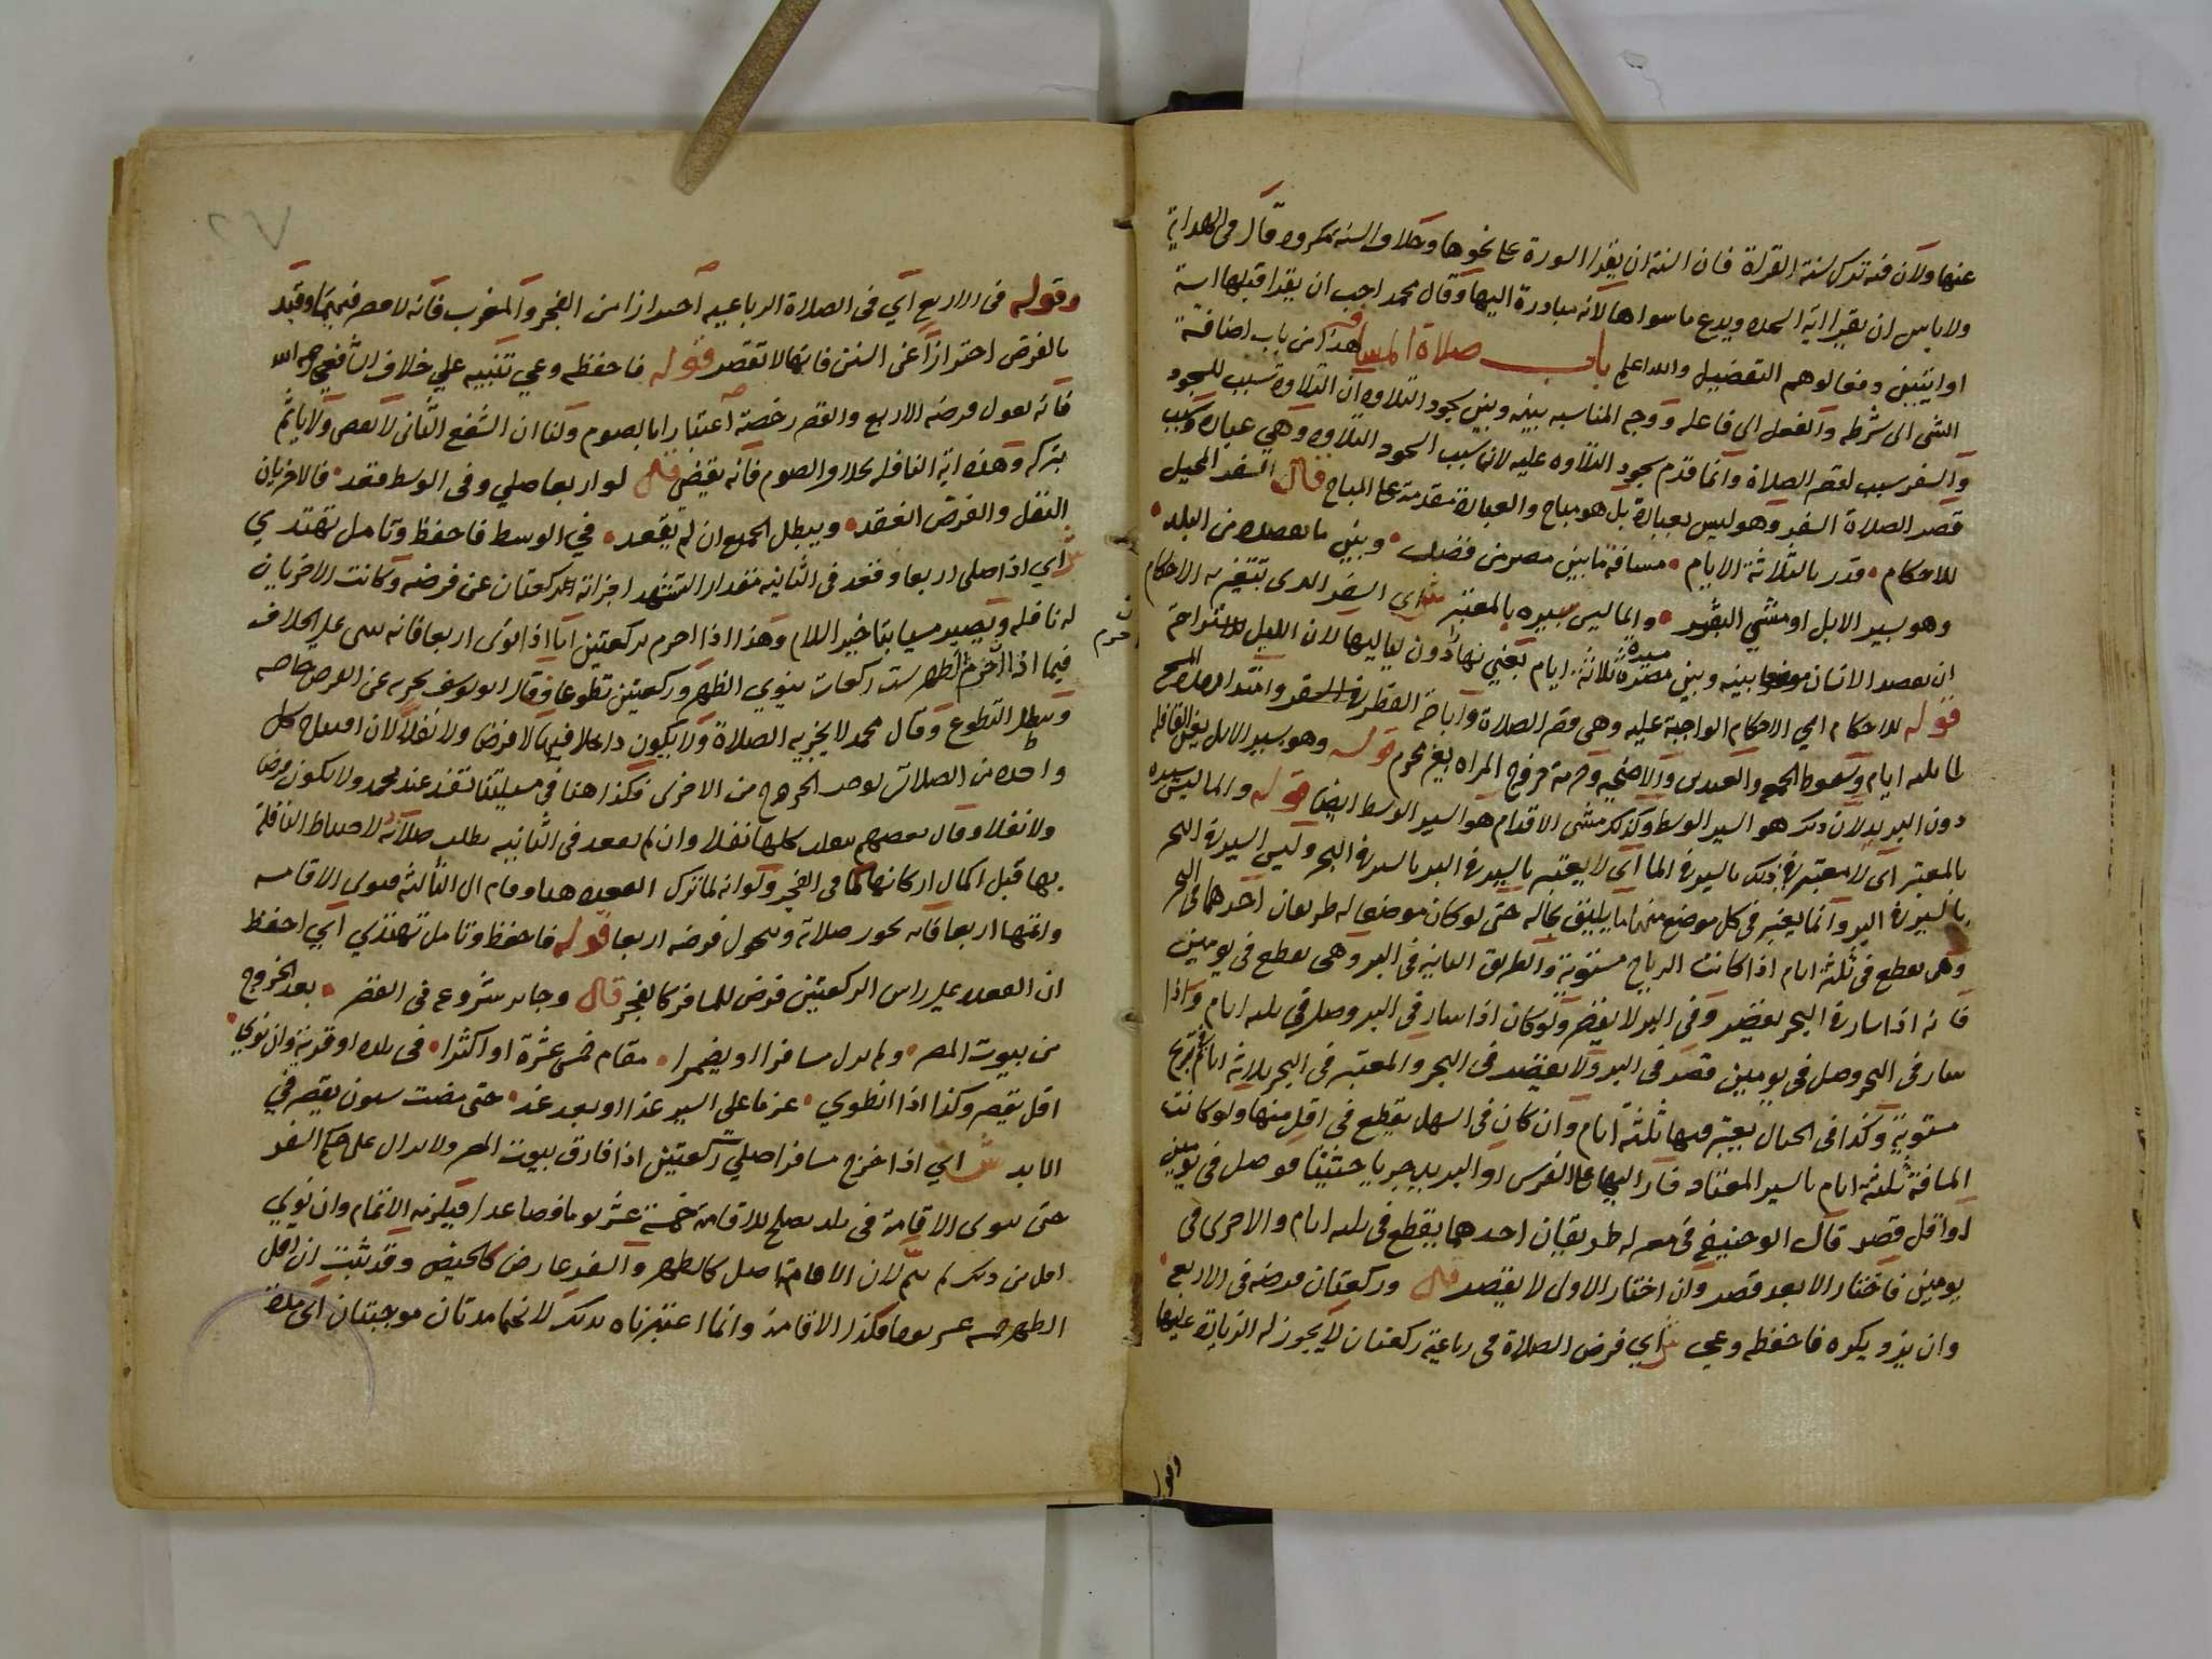 عنها ولان فيه ترك سنة القراة فان السنة ان يقرا السورة على نحوها وخلاف السنة مكروه وقال فى الهداية
ولا باس ان يقرا اية السجده ويدع ما سواها لانه مبادرة اليها وقال محمد احب ان يقرا قبلها اية
او ايتين دفعا لوهم التفضيل والله اعلم باب صلاة المسافر هذا من باب اضافة
الشى الى شرطه والفعل الى فاعله ووجه المناسبه بينه وبين سجود التلاوه ان التلاوة سبب للسجود
والسفر سبب لقصر الصلاة وانما قدم سجود التلاوه عليه لانها سبب السجود التلاوه وهي عبادة وسبب
قصر الصلاة السفر وهو ليس بعبادة بل هو مباح والعبادة مقدمة على المباح قال السفر المحيل
للاحكام قدر بالثلاثة الايام مسافة ما بين مصر من فصل وبين ما يقصده من البلد
وهو سير الابل او مشي البشر والماليس سيره بالمعتبر ش اى السفر الدى تتغير به الاحكام
ان يقصد الانسان موضعا بينه وبين مصره مسيرة ثلاثة ايام يعني نهارا دون لياليها لان الليل للاستراحة
قوله للاحكام اي الاحكام الواجبة عليه وهى قصر الصلاة واباحة الفطر وامتداد مدة المسح
الى ثلثه ايام وسقوط الجمعه والعيدين والاضحيه وحرمة خروج المراه بغير محرم قوله وهو سير الابل يعني القافله
دون البريد لان ذلك هو السير الوسط وكذلك مشى الاقدام هو السير الوسط ايضا قوله والماليس سيره
بالمعتبر اى لا معتبر فى ذلك بالسير فى الما اى لا يعتبر بالسير فى البر بالسير فى البحر وليس السير فى البحر
بالسير فى البر وانما يعتبر فى كل موضع منهما ما يليق بحاله حتى لو كان موضعا له طريقان احدهما فى البحر
وهى تقطع فى ثلثة ايام اذا كانت الرياح مستوية والطريق الثانيه فى البر وهى تقطع فى يومين
فانه اذا سار فى البحر يقصر وفى البر لا يقصر ولو كان اذا سار فى البر وصل فى ثلثه ايام واذا
سار فى البحر وصل فى يومين قصر فى البر ولا يقصر فى البحر والمعتبر فى البحر ثلاثة ايام فى ريح
مستوية وكذا فى الجبال يعتبر فيها ثلثة ايام وان كان فى السهل يقطع فى اقل منها ولو كانت
المسافة ثلثة ايام بالسير المعتاد فسار اليها على الفرس او البريد جريا حثيثا فوصل فى يومين
او اقل قصر قال ابو حنيفة فى مصر له طريقان احدهما يقطع فى ثلثه ايام والاخرى فى
يومين فاختار الابعد قصر وان اختار الاول لا يقصر قال وركعتان فرضه فى الاربع
وان يزد يكره فاحفظه وعي ش اي فرض الصلاة فى رباعية ركعتان لا يجوز له الزيادة عليها
وقوله
وقوله فى الاربع اي فى الصلاة الرباعيه احترازا من الفجر والمغرب فانه لا قصر فيهما وقيد
بالفرض احترازا عن السنن فانها لا تقصر قوله فاحفظه وعي تنبيه علي خلاف الشافعي رحمه الله
فانه يقول فرضه الاربع والقصر رخصة اعتبارا بالصوم ولنا ان الشفع الثانى لا يقضى ولا ياثم
بتركه وهذه اية النافله بخلاف الصوم فانه يقضى قال لو اربعا صلي وفى الوسط قعد فالاخريان
النفل والفرض انعقد ويبطل الجميع ان لم يقعد في الوسط فاحفظ وتامل تهتدي
ش اي اذا صلى اربعا وقعد فى الثانيه مقدار التشهد اجزاته الركعتان عن فرضه وكانت الاخريان
له نافله ويصير مسيا بتاخير السلام وهذا اذا احرم بركعتين اما اذا نوى اربعا فانه يبنى على الخلاف
فيما اذا احرم بالظهر ست ركعات ينوي الظهر وركعتين تطوعا فقال ابو يوسف يجزيه عن الفرض خاصه
ويبطل التطوع وقال محمد لا يجزيه الصلاة ولا يكون داخلا فيها لا فرضا ولا نفلا لان افتتاح كل
واحده من الصلاتين يوجب الخروج من الاخرى فكذا هنا فى مسيلتنا تفسد عند محمد ولا تكون فرضا
ولا نفلا وقال بعضهم تنقلب كلها نفلا وان لم يقعد فى الثانيه بطلت صلاته لاختلاط النافلة
بها قبل اكمال اركانها كما فى الفجر ولو انه لما ترك القعده هنا وقام الى الثالثة فنوى الاقامه
واتمها اربعا فانه تجوز صلاته ويتحول فرضه اربعا قوله فاحفظ وتامل تهتدي ايي احفظ
ان القعده على راس الركعتين فرض للمسافر كالفجر قال وجائز شروعه فى القصر بعد الخروج
من بيوت المصر ولم يزل مسافرا او يضمرا مقام خمس عشرة او اكثرا فى بلده او قرية وان نوي
اقل يقصر وكذا اذا انطوي عزما على السير غدا او بعد غد حتى مضت سنون يقصر في
الابد ش اي اذا خرج مسافرا صلي ركعتين اذا فارق بيوت المصر ولا يزال على حكم السفر
حتى ينوى الاقامة فى بلد يصلح للاقامة خمسة عشر يوما فصاعدا فيلزمه الاتمام وان نوي
اقل من ذلك لم يتم لان الاقامة اصل كالطهر والسفر عارض كالحيض وقد ثبت ان اقل
الطهر خمسه عشر يوما فكذا الاقامة وانما اعتبرناه بذلك لانهما مدتان موجبتان اي مدة